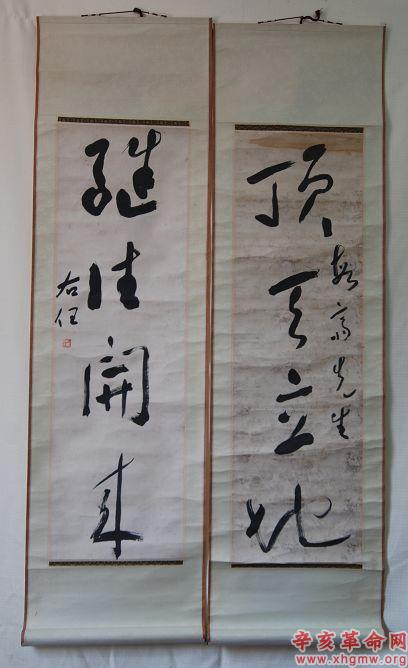 頂天立地
先生
繼往開來
右任
辛亥革命网
www.xhgmw.org